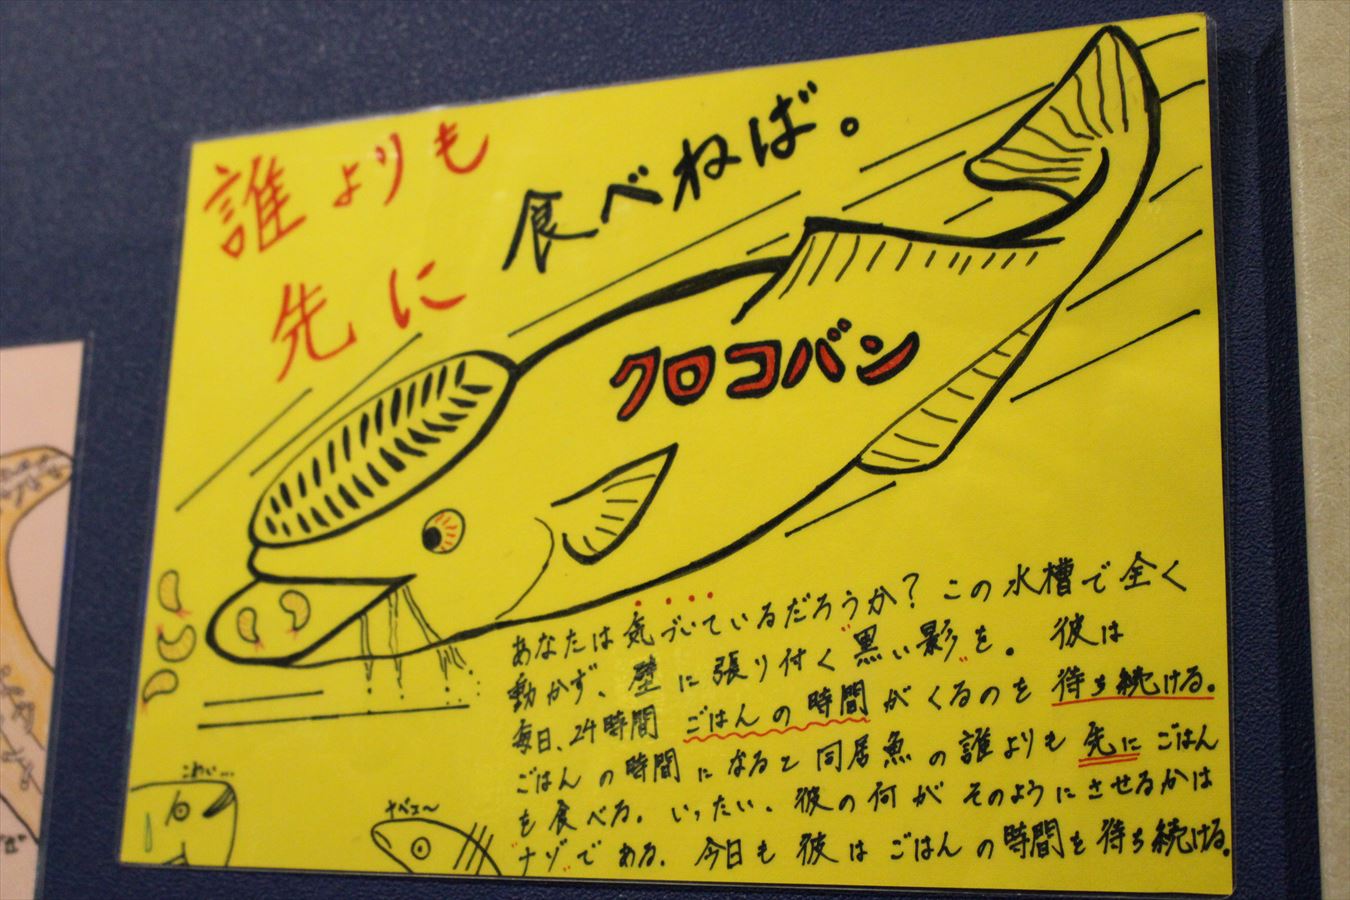 誰よりも
先に
食べねば。
クロコバン
あなたは気づいているだろうか？この水槽で全く
動かず、壁に張り付く"黒い影"を。彼は
毎日、24時間ごはんの時間がくるのを待ち続ける。
ごはんの時間になると同居魚の誰よりも先にごはん
を食べる。いったい、彼の何がそのようにさせるかは
"ナゾ"である。今日も彼はごはんの時間を待ち続ける。
こわい…
ナベェ〜